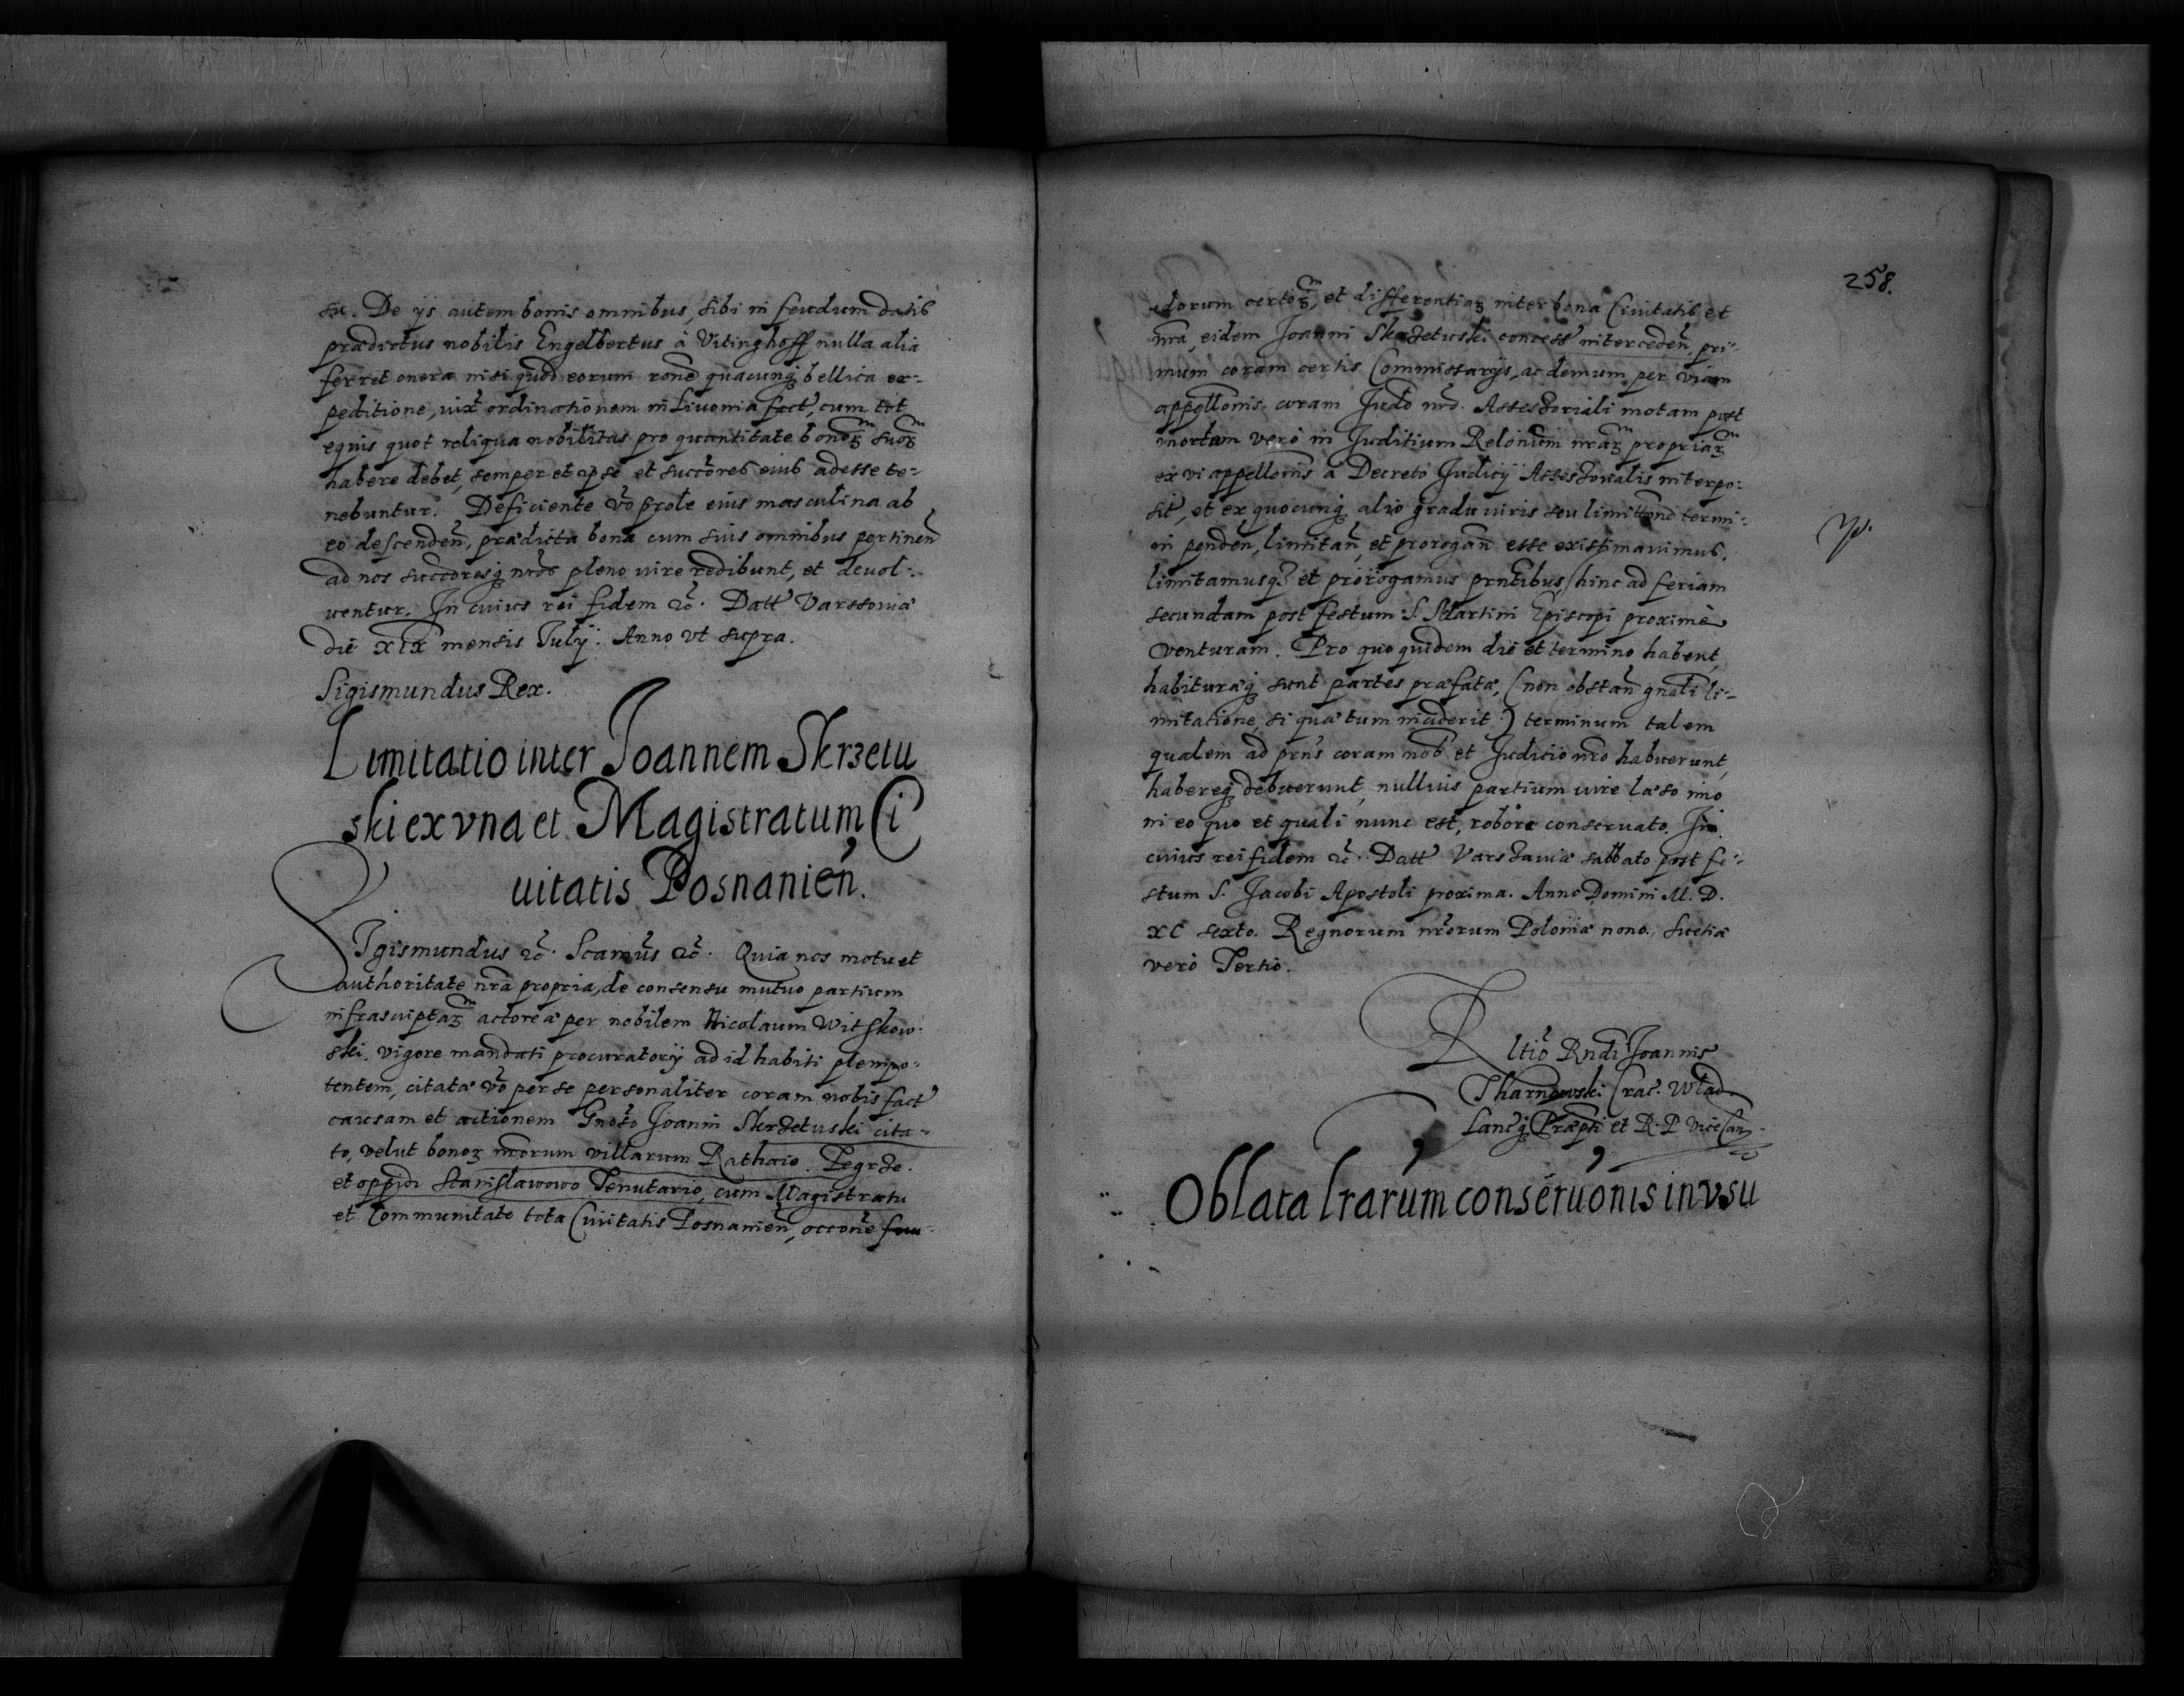 su. De ijs autem bonis omnibus, sibi in feudum datis
prædictus nobilis Engelbertus à Vitinghoff nulla alia
ferret onera nisi quod eorum rone quacunq bellica ex-
peditione, iuxt ordinationem in Livonia fact, cum tot
equis quot reliqua nobilitas pro quantitate bonor suor
habere debet, semper et ipse et succores eius adesse te-
nebuntur. Deficiente vo prole eius masculina ab
eo descenden, prædicta bona cum suis omnibus pertinen
ad nos succoresq nros pleno iure redibunt, et devol-
ventur. In cuius rei fidem etc. Datt Varssoviæ
die XIX mensis Iulij. Anno vt supra.
Sigismundus Rex.
Limitatio inter Joannem Skrzetu
ski ex vna et Magistratum Ci
uitatis Posnanien.
Sigismundus etc. Quia nos motu et
authoritate nra propria, de consensu mutuo partium
infrascriptar actoreæ per nobilem Nicolaum Witskow-
ski, vigore mandati procuratorij ad id habiti plenipo-
tentem, citatæ vo per se personaliter coram nobis fact
causam et actionem Gnoso Joanni Skrzetuski cita-
to, velut bonor nrorum villarum Rathaie. Pegrze.
et oppidi Stanislawowo Tenutario, cum Magistratu
et Communitate tota Ciuitatis Posnanien, occone
258.
dorum certor, et differentiar inter bona Ciuitatis et
nra, eidem Joanni Skrzetuski concess interceden, pri-
mum coram certis Commissarijs, ac demum per viam
appellonis coram Judo nro Assessoriali motam post
mortem verò in Juditium Relonum nrar propriar
ex vi appellonis à Decreto Judicij Assessorialis interpo-
sit, et ex quocunq alio gradu iuris seu limittone termi-
ni penden, limitan, et prorogan esse existimauimus,
limitamusq et prorogamus prntibus, hinc ad feriam
secundam post festum S. Martini Episcopi proximè
venturam. Pro quo quidem die et termino habent,
habituræq sunt partes præfatæ, (non obstan gnali li-
mitatione, si quæ tum inciderit) terminum talem
qualem ad prns coram nob et Juditio nro habuerunt,
habereq debuerunt, nullius partium iure læso imo
in eo quo et quali nunc est, robore conseruato. In
cuius rei fidem etc. Datt Varssauiæ sabbato post fe-
stum S. Jacobi Apostoli proxima. Anno Domini M. D.
XC sexto. Regnorum nrorum Poloniæ nono, Suetiæ
verò Tertio.
Rltio Rndi Joannis
Tharnowski Crac. Wlad.
Lancq Præpti et R. P. ViceCan
Oblata lrarum conseruonis in vsu